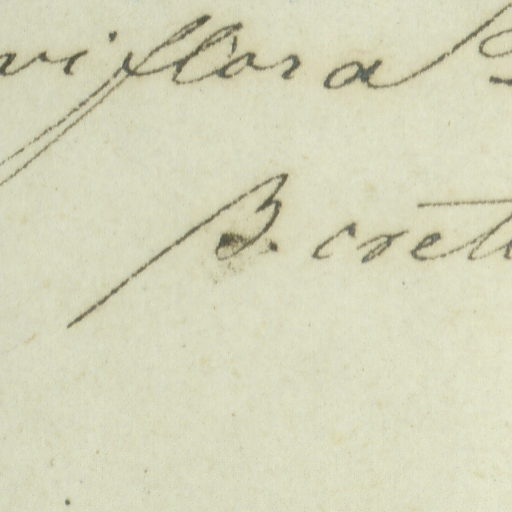 viflora
β. cret